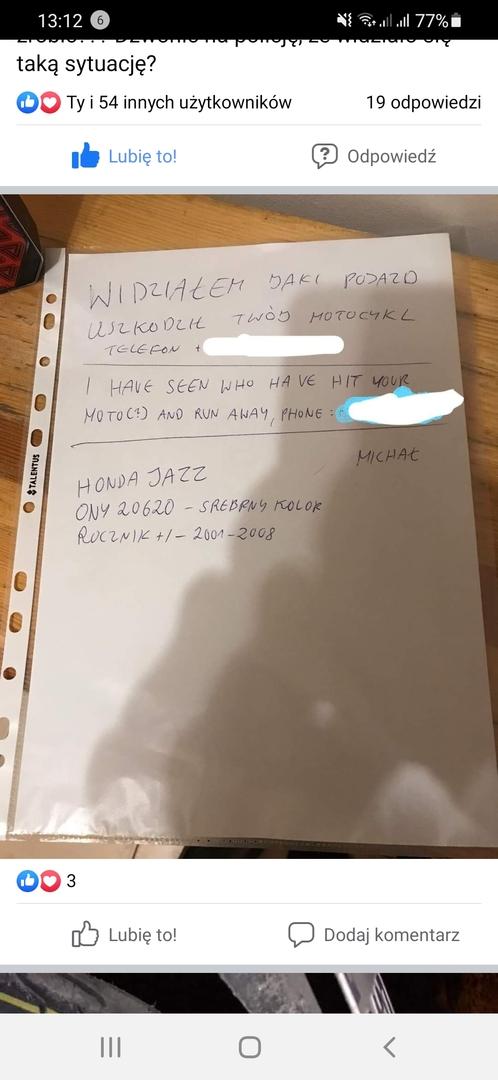 13:12 6 77%
taką sytuację?
Ty i 54 innych użytkowników 19 odpowiedzi
Lubię to! Odpowiedź
WIDZIAŁEM JAKI POJAZD
USZKODZIŁ TWÓJ MOTOCYKL
TELEFON +
I HAVE SEEN WHO HAVE HIT YOUR
MOTO(?) AND RUN AWAY, PHONE:
MICHAŁ
HONDA JAZZ
ONY 20620 - SREBRNY KOLOR
ROCZNIK +/- 2001-2008
TALENTUS
3
Lubię to! Dodaj komentarz